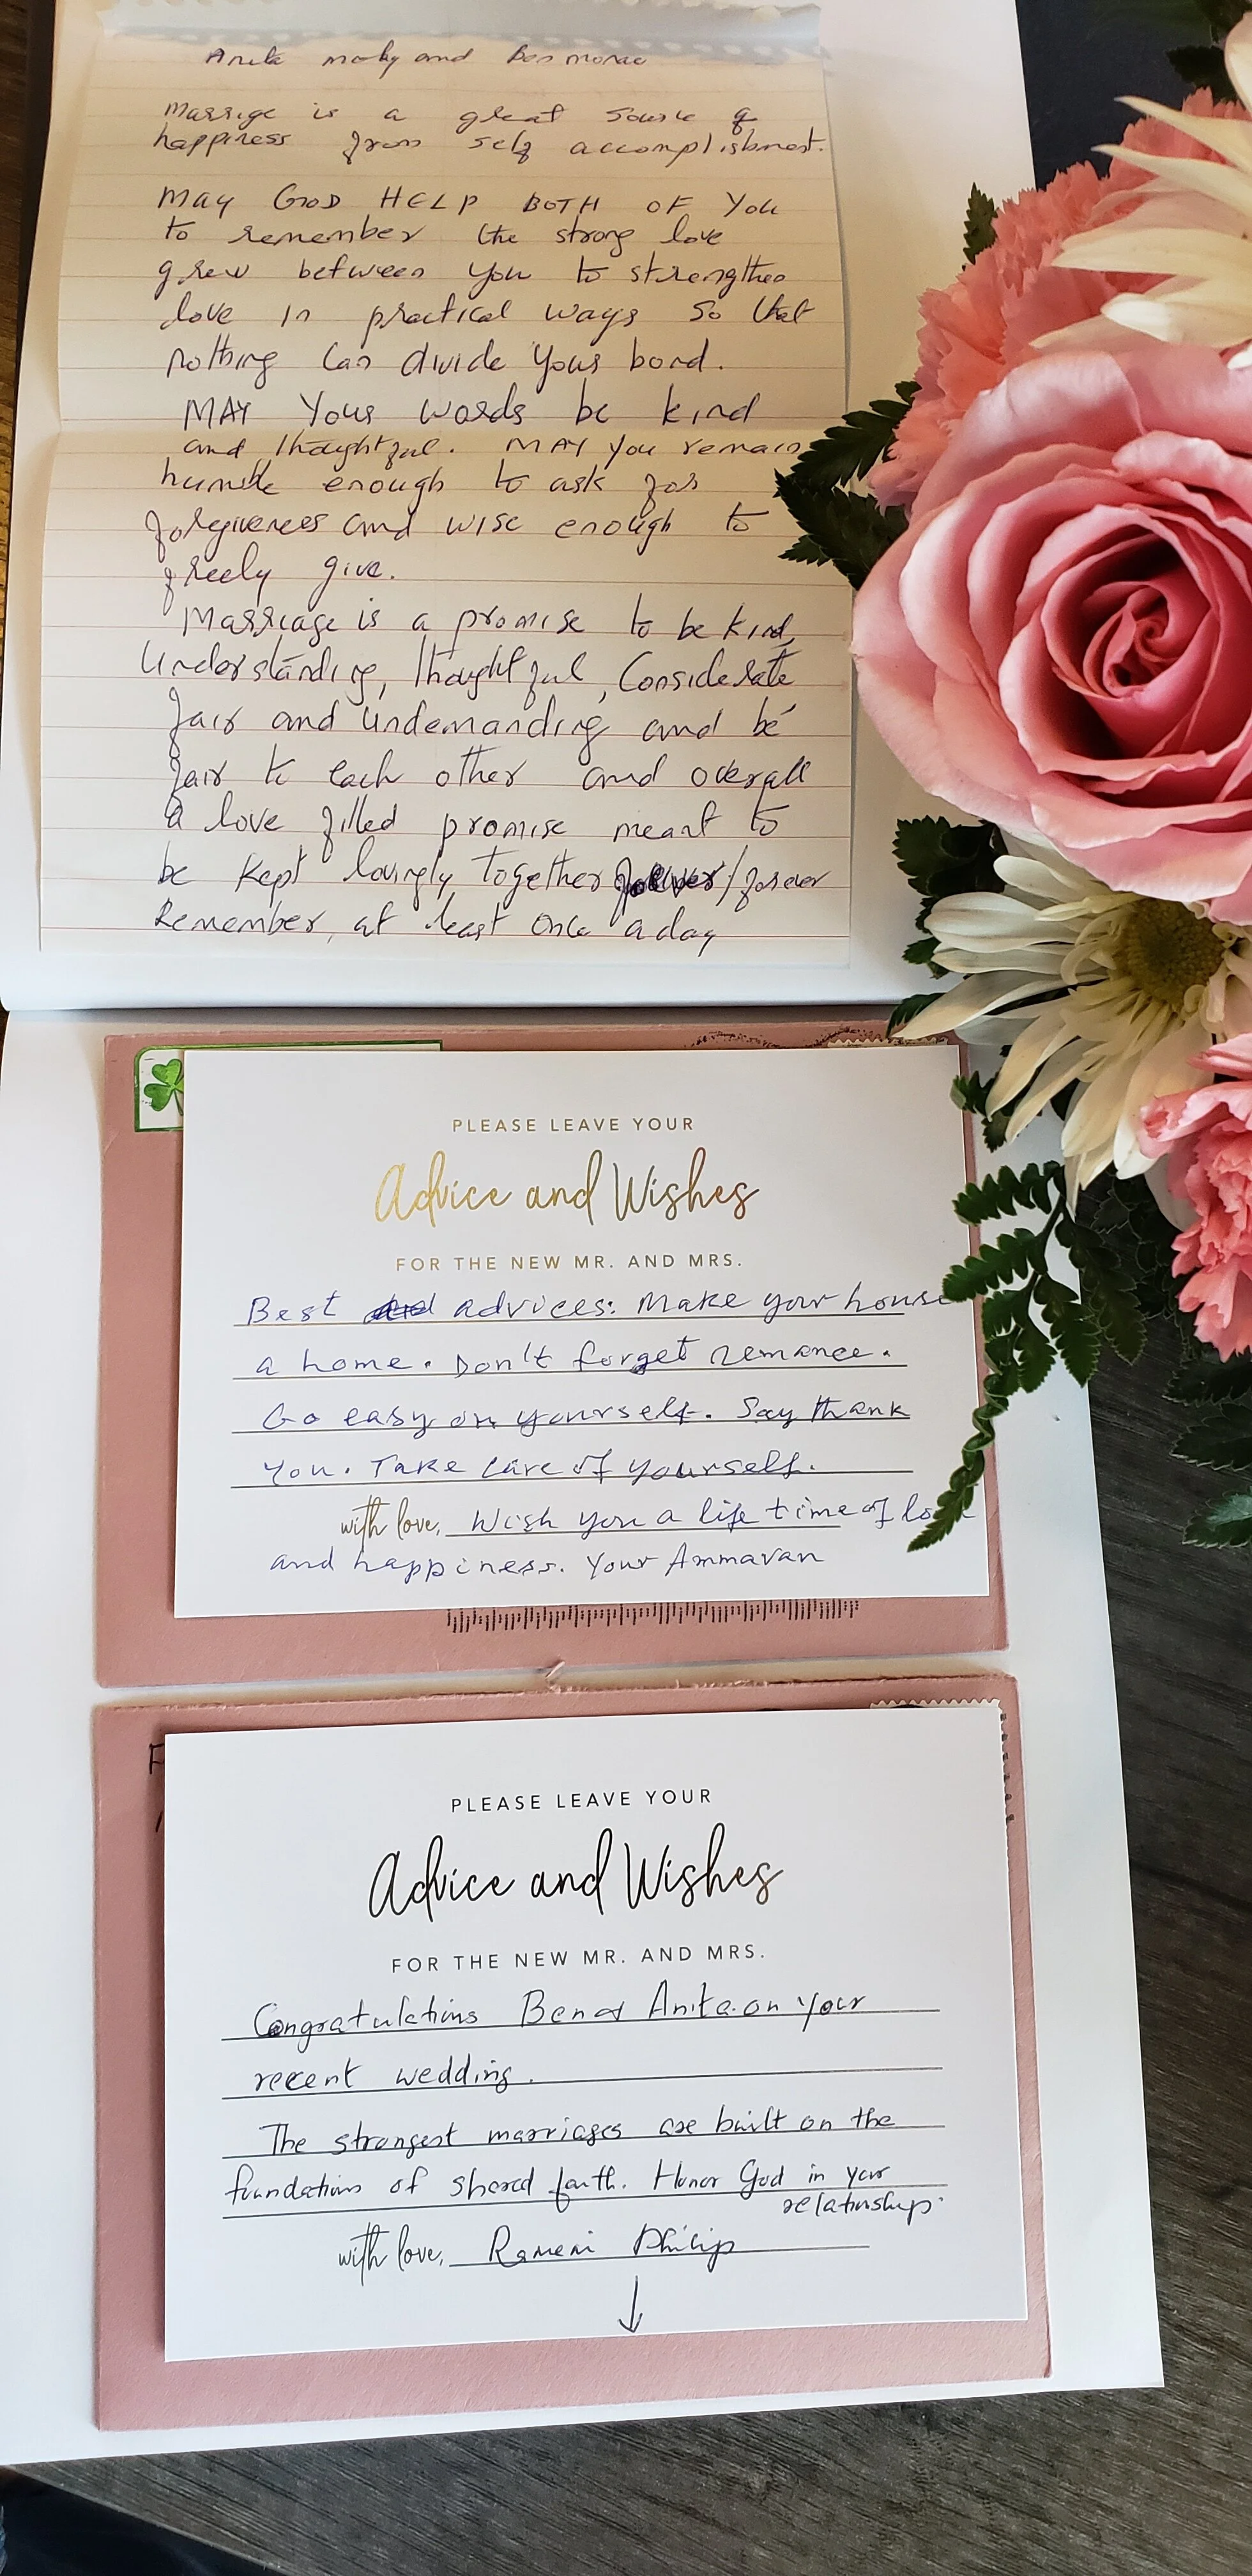 Anita moly and Ben monae
Marrige is a great sourse of
happiness from self accomplishment.
MAY GOD HELP BOTH OF YOU
to remember the strong love
grew between you to strengthen
love in practical ways so that
nothing can divide your bond.
MAY Your words be kind
and thoughtful. MAY you remain
humble enough to ask for
forgiveness and wise enough to
freely give.
Marriage is a promise to be kind,
Understanding, thoughtful, Considerate
fair and undemanding and be
fair to each other and overall
a love filled promise meant to
be kept lovingly together / forever
Remember, at least once a day
PLEASE LEAVE YOUR
Advice and Wishes
FOR THE NEW MR. AND MRS.
Best advices: Make your house
a home. Don't forget remance.
Go easy on yourself. Say thank
You. Take care of yourself.
with love, Wish you a life time of
and happiness. Your Ammavan
PLEASE LEAVE YOUR
Advice and Wishes
FOR THE NEW MR. AND MRS.
Congratulations Ben & Anita on your
recent wedding.
The strongest marriages are built on the
foundation of shared faith. Honor God in your
relationship.
with love, Philip